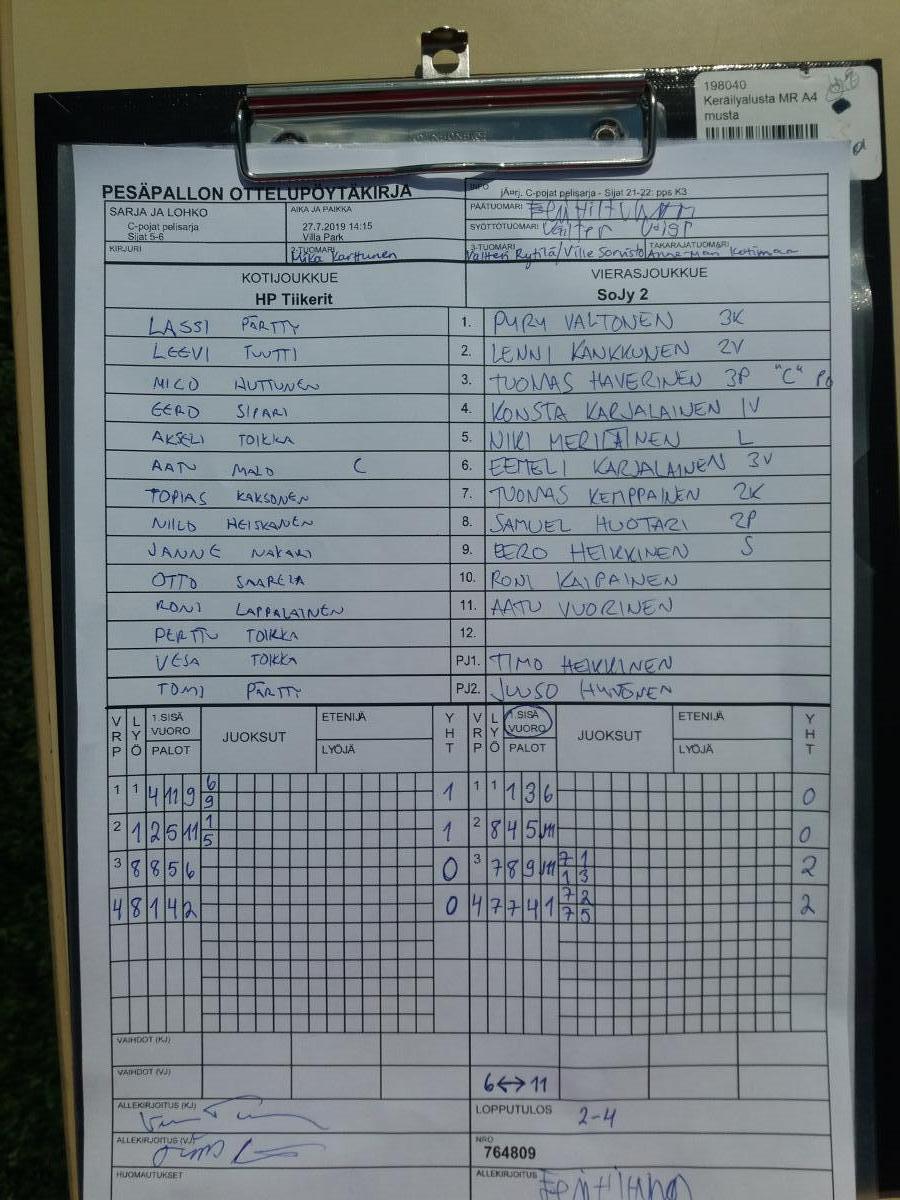 198040
Keräilyalusta MR A4
musta
PESÄPALLON OTTELUPÖYTÄKIRJA
INFO
jÄerj. C-pojat pelisarja - Sijat 21-22: pps K3
SARJA JA LOHKO
C-pojat pelisarja
Sijat 5-6
AIKA JA PAIKKA
27.7.2019 14:15
Villa Park
PÄÄTUOMARI
SYÖTTÖTUOMARI Valtteri
KIRJURI
2-TUOMARI
Mika Karttunen
3-TUOMARI
Valtteri Rytilä/Ville Sorvisto
TAKARAJATUOMARI
Anne-Mari Kotimaa
KOTIJOUKKUE
HP Tiikerit
VIERASJOUKKUE
SoJy 2
LASSI PÄRTTY 1. PYRY VALTONEN 3K
LEEVI TUUTTI 2. LENNI KANKKUNEN 2V
MICO HUTTUNEN 3. TUOMAS HAVERINEN 3P "C"
EERO SIPARI 4. KONSTA KARJALAINEN 1V
AKSELI TOIKKA 5. NIKI MERILÄINEN L
AATU MALO C 6. EEMELI KARJALAINEN 3V
TOPIAS KAKSONEN 7. TUOMAS KEMPPAINEN 2K
NIILO HEISKANEN 8. SAMUEL HUOTARI 2P
JANNE NAKARI 9. EERO HEIKKINEN S
OTTO SAARELA 10. RONI KAIPAINEN
RONI LAPPALAINEN 11. AATU VUORINEN
PERTTU TOIKKA 12.
VESA TOIKKA PJ1. TIMO HEIKKINEN
TOMI PÄRTTY PJ2. JUUSO HYVÖNEN
VRP LYÖ 1.SISÄ VUORO PALOT JUOKSUT ETENIJÄ LYÖJÄ YHT VRP LYÖ 1.SISÄ VUORO PALOT JUOKSUT ETENIJÄ LYÖJÄ YHT
1 1 4 11 9 6 9 1 1 1 1 3 6 0
2 1 2 5 11 1 5 1 2 8 4 5 m 0
3 8 8 5 6 0 3 7 8 9 m 7 1 1 3 2
4 8 1 4 2 0 4 7 7 4 1 7 2 7 5 2
VAIHDOT (KJ)
VAIHDOT (VJ) 6↔11
ALLEKIRJOITUS (KJ)
LOPPUTULOS 2-4
ALLEKIRJOITUS (VJ)
NRO
764809
HUOMAUTUKSET
ALLEKIRJOITUS